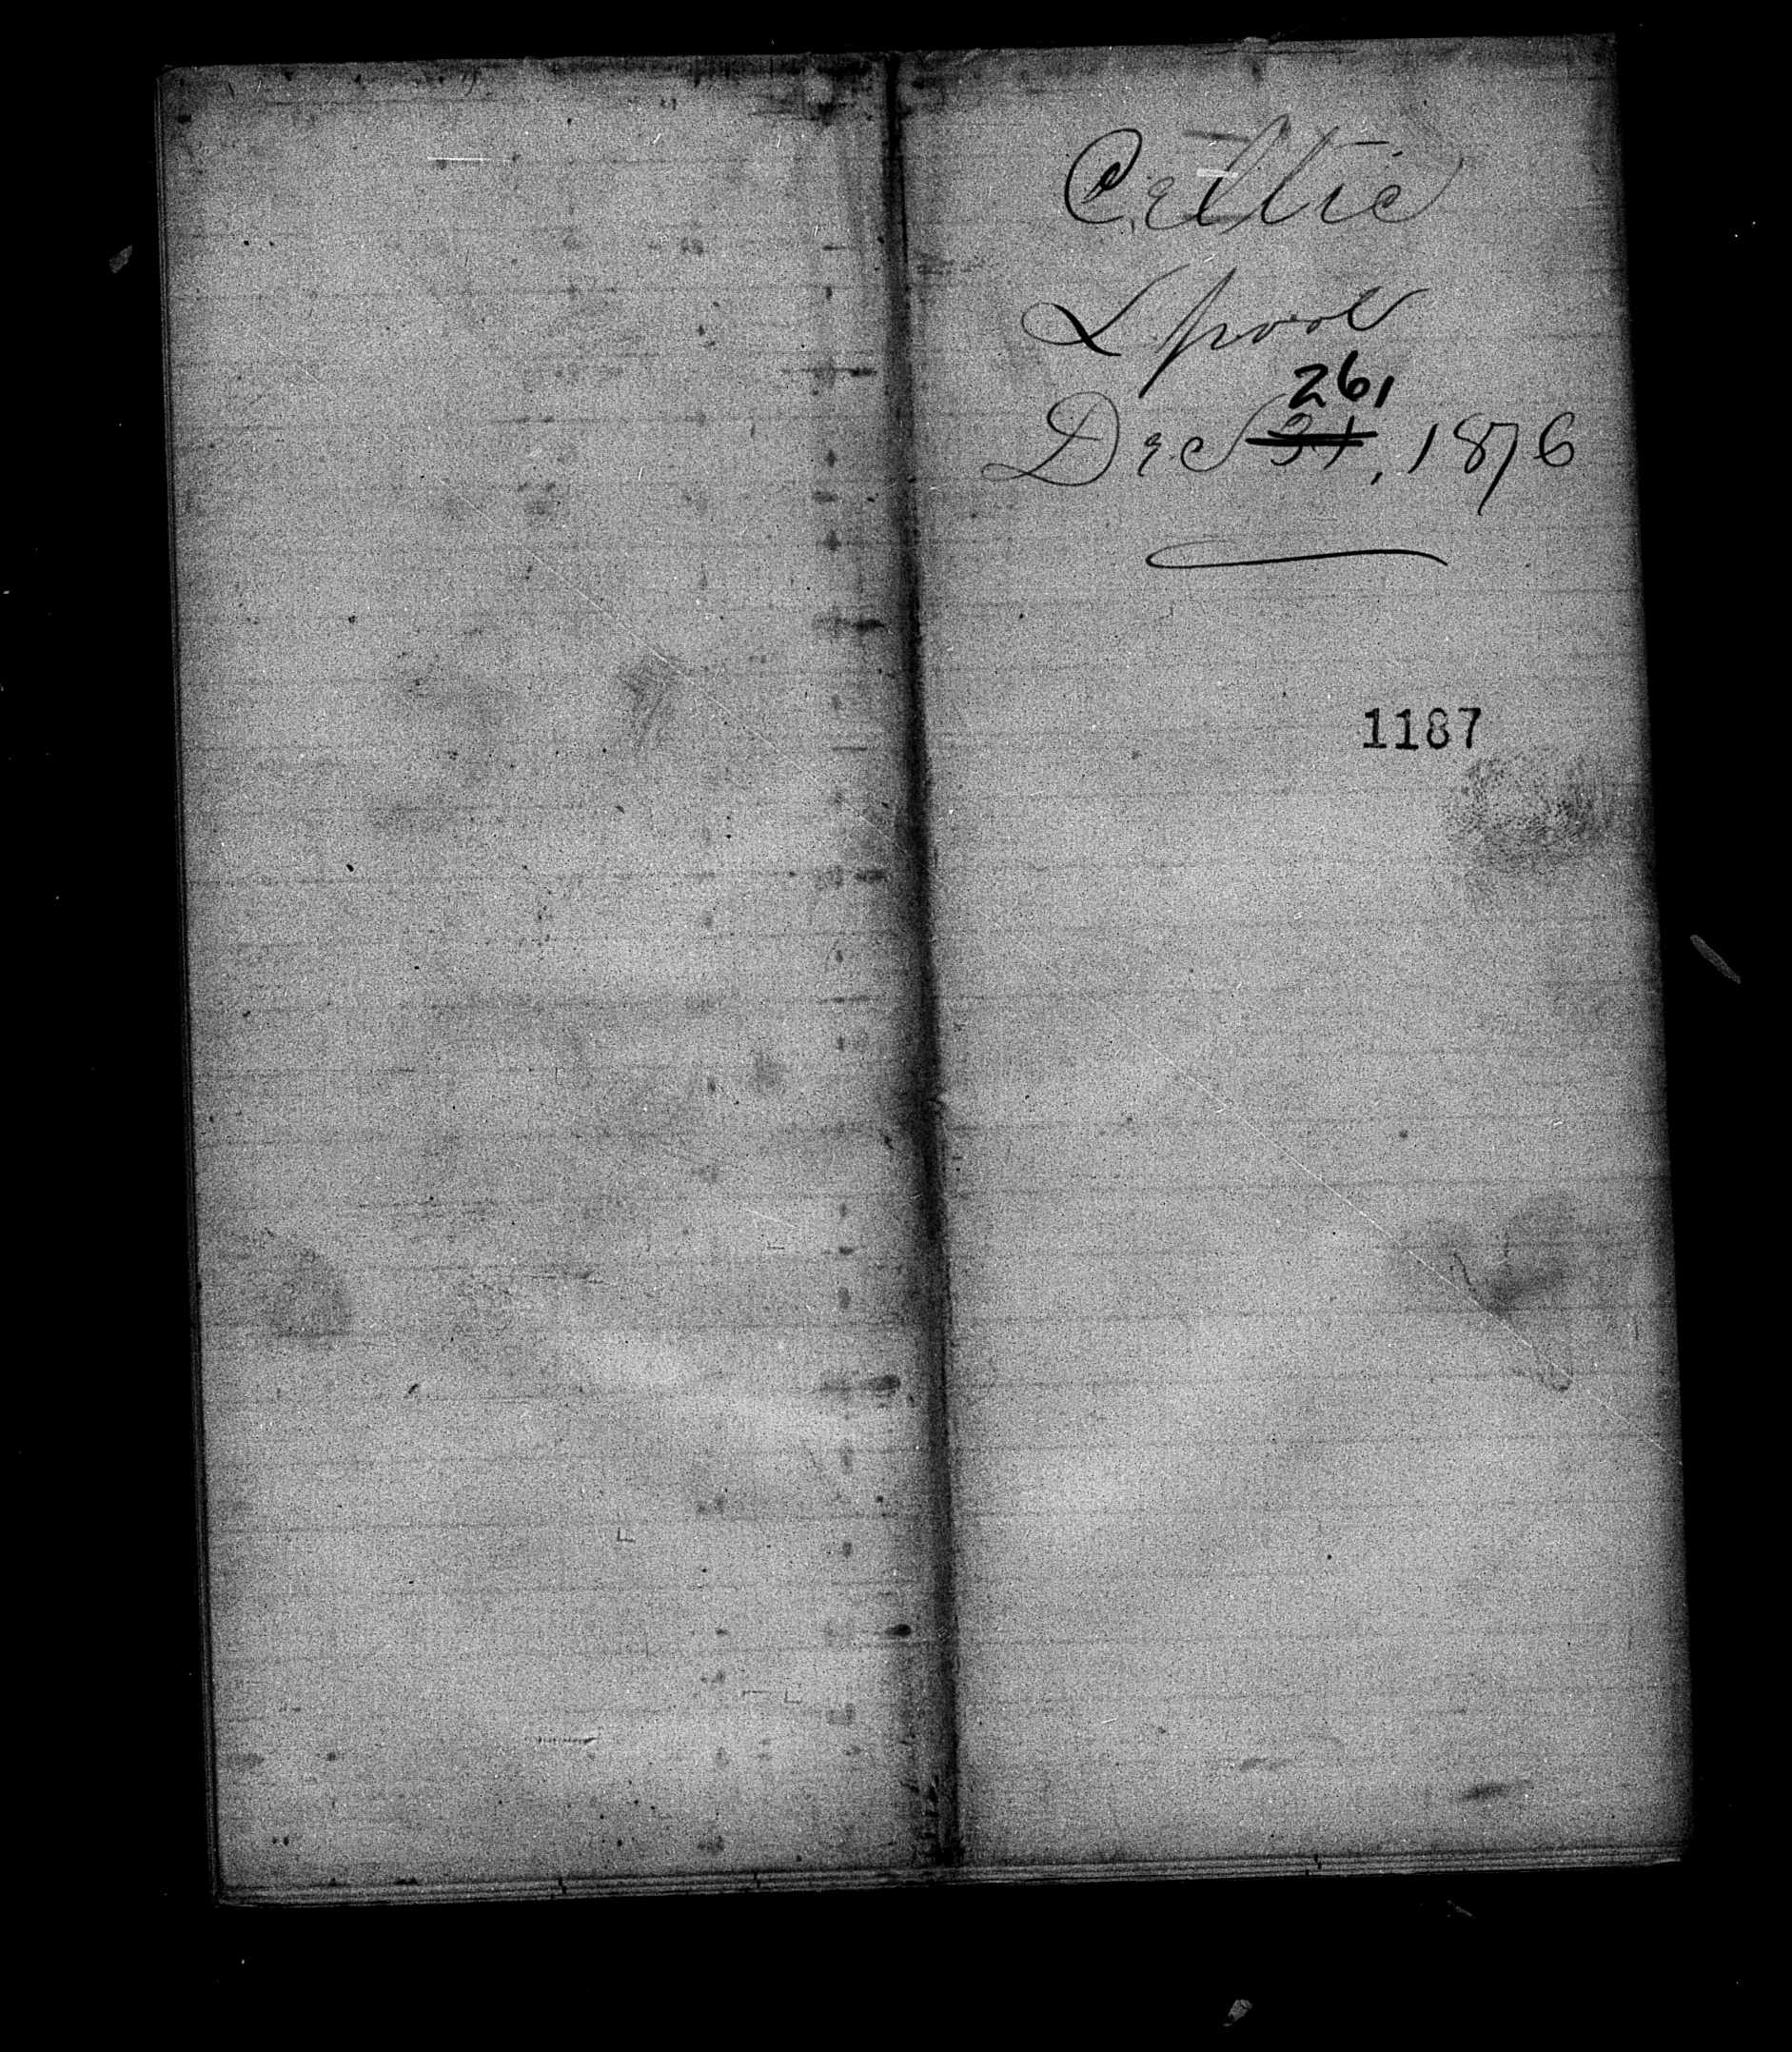 Celtic
L pool
26,
Dec 31, 1876
1187